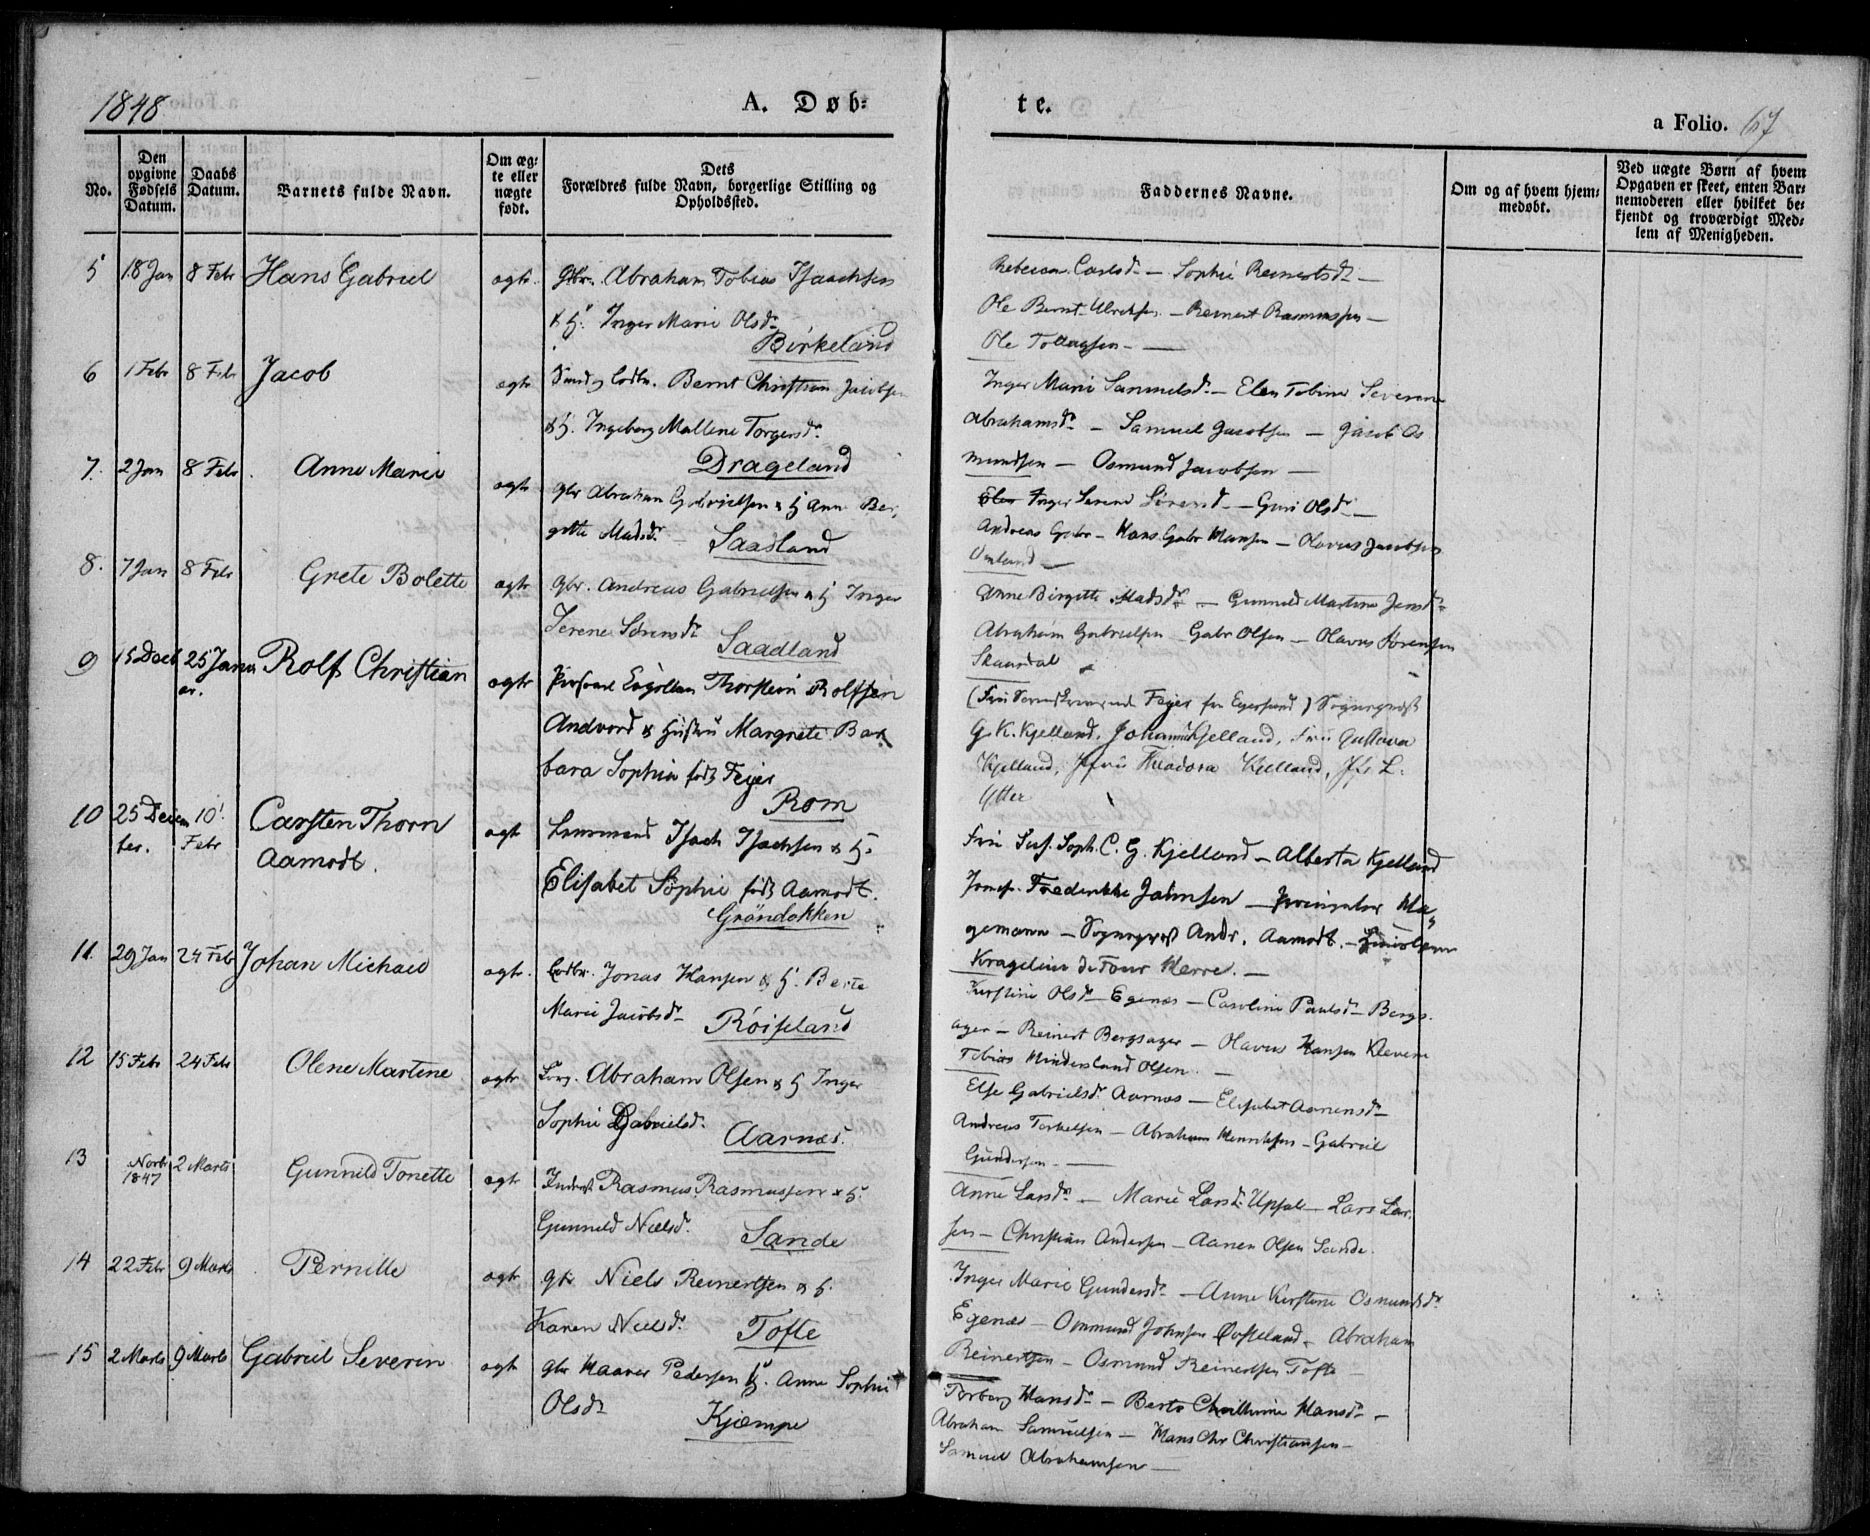 1848
A. Døb-
te.
a Folio. 67
No.
Den opgivne Fødsels Datum.
Daabs Datum.
Barnets fulde Navn.
Om æg-
te eller
uægte
født.
Dets
Forældres fulde Navn, borgerlige Stilling og
Opholdssted.
Faddernes Navne.
Om og af hvem hjem-
medøbt.
Ved uægte Børn af hvem
Opgaven er skeet, enten Bar-
nemoderen eller hvilket be-
kjendt og troværdigt Med-
lem af Menigheden.
5 18 Jan 8 Febr Hans Gabriel ægte Gbr. Abraham Tobias Isaachsen
& H. Inger Marie Olsdr
Birkeland
Rebecca Carlsdr — Sophie Reinertsdr —
Ole Bernt Ulrichsen — Reinert Rasmussen —
Ole Tollagsen —
6 1 Febr 8 Febr Jacob ægte Bernt Christian Jacobsen
& H. Ingeborg Mallene Torgersdr
Drageland
Inger Marie Samuelsdr — Elen Tobine Severine
Abrahamsdr — Samuel Jacobsen — Jacob Os
mundsen — Osmund Jacobsen —
7. 2 Jan 8 Febr Anne Marie ægte gbr Abraham Gabrielsen & H Ann Ber,
gitte Madsdr — Saadland
Inger Serene Sørensd — Guri Olsdr —
Andreas Gabr — Hans Gabr Hansen — Olavus Jacobsen
Omland —
8. 7 Jan 8 Febr Grete Bolette ægte gbr. Andreas Gabrielsen & H Inger
Serene Sørensdr Saadland
Anne Birgitte Madsdr — Gunnild Martine Jensdr
Abraham Gabrielsen — Gabr Olsen — Olavus Sørensen
Skaardal
9 15 Decb 25 Janu
ar. Rolf Christian ægte Thorstein Rolfsen
Andvord & Hustru Margrete Bar
bara Sophia født Fejer
Rom
Fejer fra Egersund) Sogneprest
G. K. Kjelland, Johanna Kjelland, Fru Gustava
Kjelland, Jfru Theodora Kjelland, Jfr L.
Ytter
10 25 Decem
ber. 10
Febr Carsten Thorn
Aamodt. ægte Lensmand Isach Isachsen & H.
Elisabet Sophie født Aamodt.
Gröndokken
Fru Sus. Soph. C. G. Kjelland — Alberta Kjelland
Jomfr. Fredrikke Jahnsen — Ha„
gemann — Sogneprest Andr. Aamodt. —
Kragelius de Four Herre. —
11. 29 Jan 24 Febr Johan Michael ægte Jonas Hansen & H. Berte
Marie Jacobsdr Röiseland
Kirstine Olsdr Egenæs — Caroline Paulsdr Bergs.
ager — Reinert Bergsager — Olavus Hansen Kleven
Tobias Hindersland Olsen. —
12 15 Febr 24 Febr Olene Martine ægte Abraham Olsen & H Inger
Sophie Gabrielsdr. Aarnæs.
Else Gabrielsdr Aarnæs — Elisabet Aanensdr
Andreas Torkelsen — Abraham Henriksen — Gabriel
Gundersen. —
13 Novbr
1847 2 Marts Gunnild Tonette ægte Inderst Rasmus Rasmussen & H.
Gunnild Nielsdr. Sande
Anne Larsdr — Marie Larsd. Upsal — Lars Lar.
sen — Christian Andersen — Aanen Olsen Sande.
14 22 Febr 9 Marts Pernille ægte gbr Niels Reinertsen & H.
Karen Nielsdr. Tofte
Inger Marie Gundersdr — Anne Kirstine Osmundsdr
Egenæs — Ommund Johnsen — Abraham
Reinertsen — Osmund Reinertsen Tofte —
15 2 Marts 9 Marts Gabriel Severin ægte gbr Haaver Pedersen & H. Anne Sophie
Olsdr Kjæmpe
Torborg Hansdr — Berte Hansdr —
Abraham Samuelsen — Hans Chr Christiansen —
Samuel Abrahamsen —